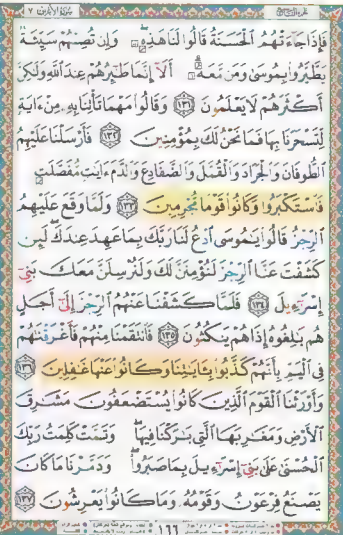 فَإِذَا جَآءَتْهُمُ ٱلْحَسَنَةُ قَالُوا۟ لَنَا هَٰذِهِۦ ۖ وَإِن تُصِبْهُمْ سَيِّئَةٌ
يَطَّيَّرُوا۟ بِمُوسَىٰ وَمَن مَّعَهُۥٓ ۗ أَلَآ إِنَّمَا طَٰٓئِرُهُمْ عِندَ ٱللَّهِ وَلَٰكِنَّ
أَكْثَرَهُمْ لَا يَعْلَمُونَ ١٣١ وَقَالُوا۟ مَهْمَا تَأْتِنَا بِهِۦ مِنْ ءَايَةٍ
لِّتَسْحَرَنَا بِهَا فَمَا نَحْنُ لَكَ بِمُؤْمِنِينَ ١٣٢ فَأَرْسَلْنَا عَلَيْهِمُ
ٱلطُّوفَانَ وَٱلْجَرَادَ وَٱلْقُمَّلَ وَٱلضَّفَادِعَ وَٱلدَّمَ ءَايَٰتٍ مُّفَصَّلَٰتٍ
فَٱسْتَكْبَرُوا۟ وَكَانُوا۟ قَوْمًا مُّجْرِمِينَ ١٣٣ وَلَمَّا وَقَعَ عَلَيْهِمُ
ٱلرِّجْزُ قَالُوا۟ يَٰمُوسَى ٱدْعُ لَنَا رَبَّكَ بِمَا عَهِدَ عِندَكَ ۖ لَئِن
كَشَفْتَ عَنَّا ٱلرِّجْزَ لَنُؤْمِنَنَّ لَكَ وَلَنُرْسِلَنَّ مَعَكَ بَنِىٓ
إِسْرَٰٓءِيلَ ١٣٤ فَلَمَّا كَشَفْنَا عَنْهُمُ ٱلرِّجْزَ إِلَىٰٓ أَجَلٍ
هُم بَٰلِغُوهُ إِذَا هُمْ يَنكُثُونَ ١٣٥ فَٱنتَقَمْنَا مِنْهُمْ فَأَغْرَقْنَٰهُمْ
فِى ٱلْيَمِّ بِأَنَّهُمْ كَذَّبُوا۟ بِـَٔايَٰتِنَا وَكَانُوا۟ عَنْهَا غَٰفِلِينَ ١٣٦
وَأَوْرَثْنَا ٱلْقَوْمَ ٱلَّذِينَ كَانُوا۟ يُسْتَضْعَفُونَ مَشَٰرِقَ
ٱلْأَرْضِ وَمَغَٰرِبَهَا ٱلَّتِى بَٰرَكْنَا فِيهَا ۖ وَتَمَّتْ كَلِمَتُ رَبِّكَ
ٱلْحُسْنَىٰ عَلَىٰ بَنِىٓ إِسْرَٰٓءِيلَ بِمَا صَبَرُوا۟ ۖ وَدَمَّرْنَا مَا كَانَ
يَصْنَعُ فِرْعَوْنُ وَقَوْمُهُۥ وَمَا كَانُوا۟ يَعْرِشُونَ ١٣٧
١٦٦